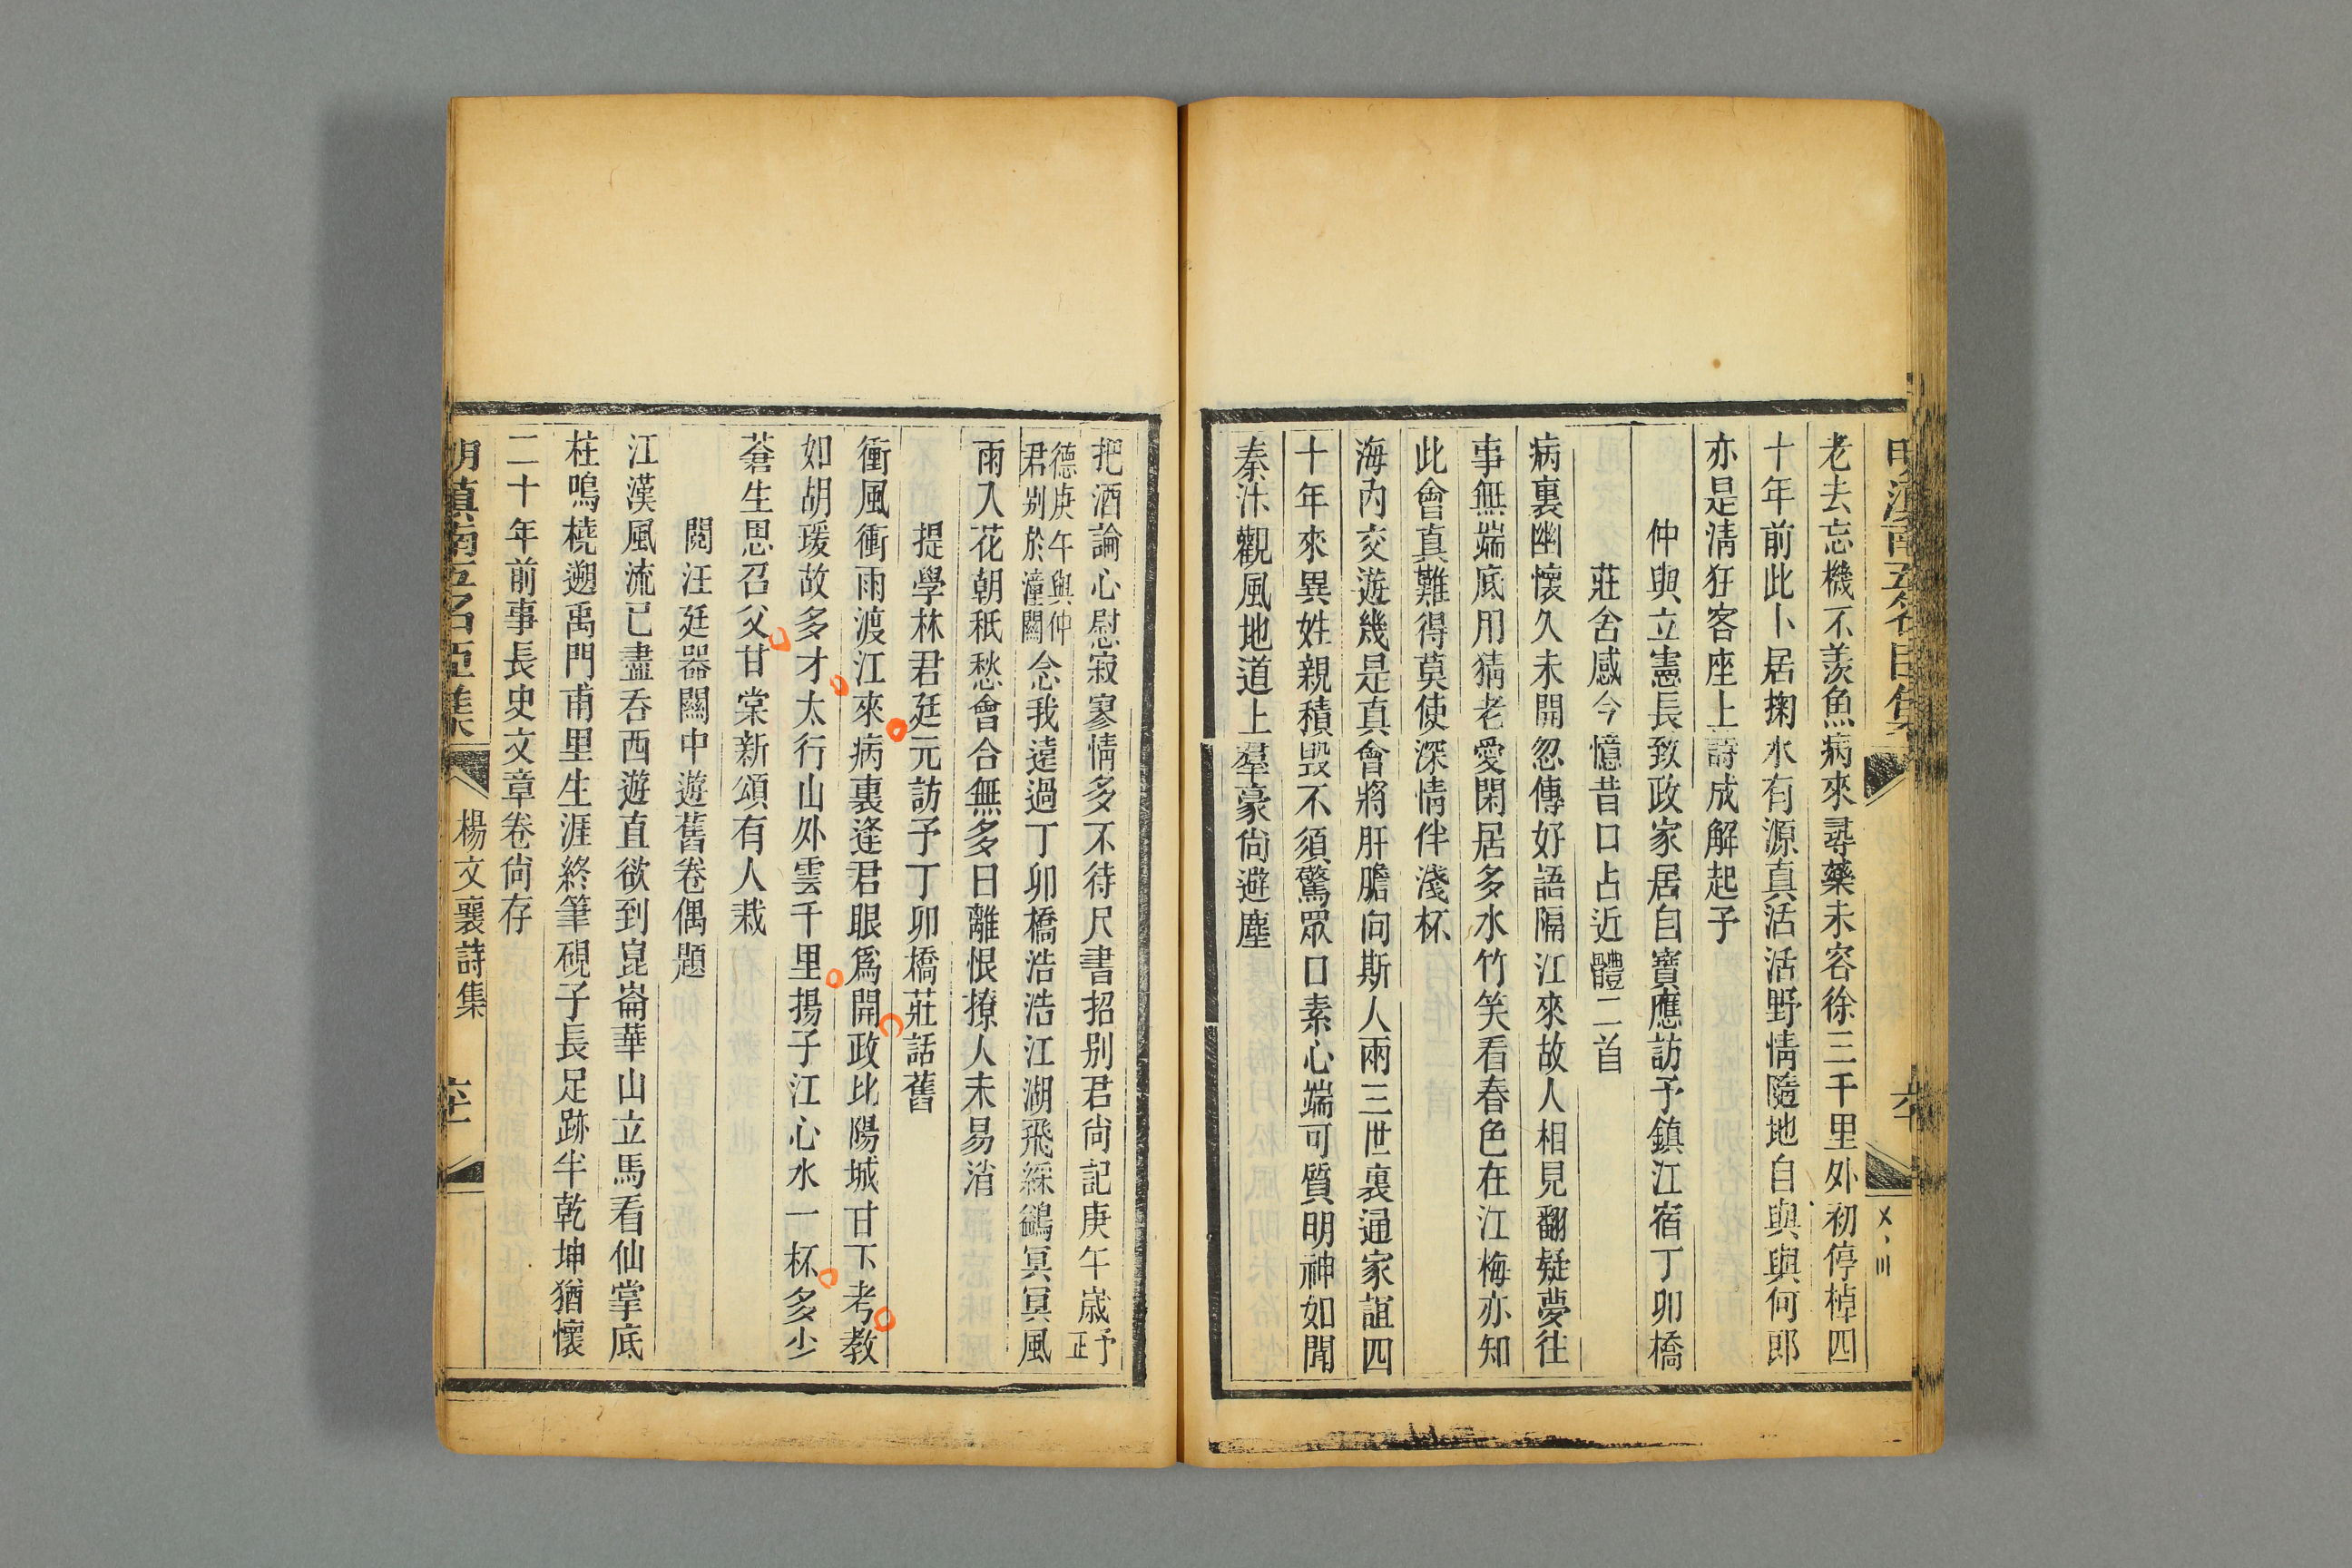 老去忘機不羨魚病來尋藥未容徐三千里外初停棹四
十年前此卜居掬水有源真活活野情隨地自與與何郎
亦是清狂客座上詩成解起予
仲與立憲長致政家居自寶應訪予鎮江宿丁卯橋
莊舍感今憶昔口占近體二首
病裏幽懷久未開忽傳好語隔江來故人相見翻疑夢往
事無端底用猜老愛閑居多水竹笑看春色在江梅亦知
此會真難得莫使深情伴淺杯
海內交遊幾是真會將肝膽向斯人兩三世裏通家誼四
十年來異姓親積毀不須驚眾口素心端可質明神如聞
秦汴觀風地道上羣豪尚避塵
把酒論心慰寂寥情多不待尺書招別君尚記庚午歲予正
德庚午與仲君別於潼關念我遠過丁卯橋浩浩江湖飛綵鷁冥冥風
雨入花朝秖愁會合無多日離恨撩人未易消
提學林君廷元訪予丁卯橋莊話舊
衝風衝雨渡江來病裏逢君眼為開政比陽城甘下考教
如胡瑗故多才太行山外雲千里揚子江心水一杯多少
蒼生思召父甘棠新頌有人栽
閱汪廷器關中遊舊卷偶題
江漢風流已盡吞西遊直欲到崑崙華山立馬看仙掌底
柱鳴橈遡禹門甫里生涯終筆硯子長足跡半乾坤猶懷
二十年前事長史文章卷尚存
楊文襄詩集